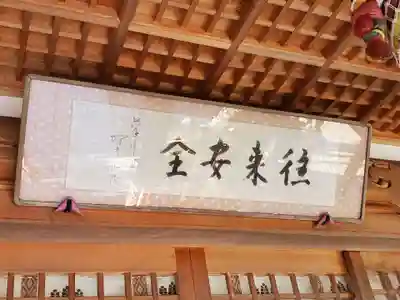 往来安全